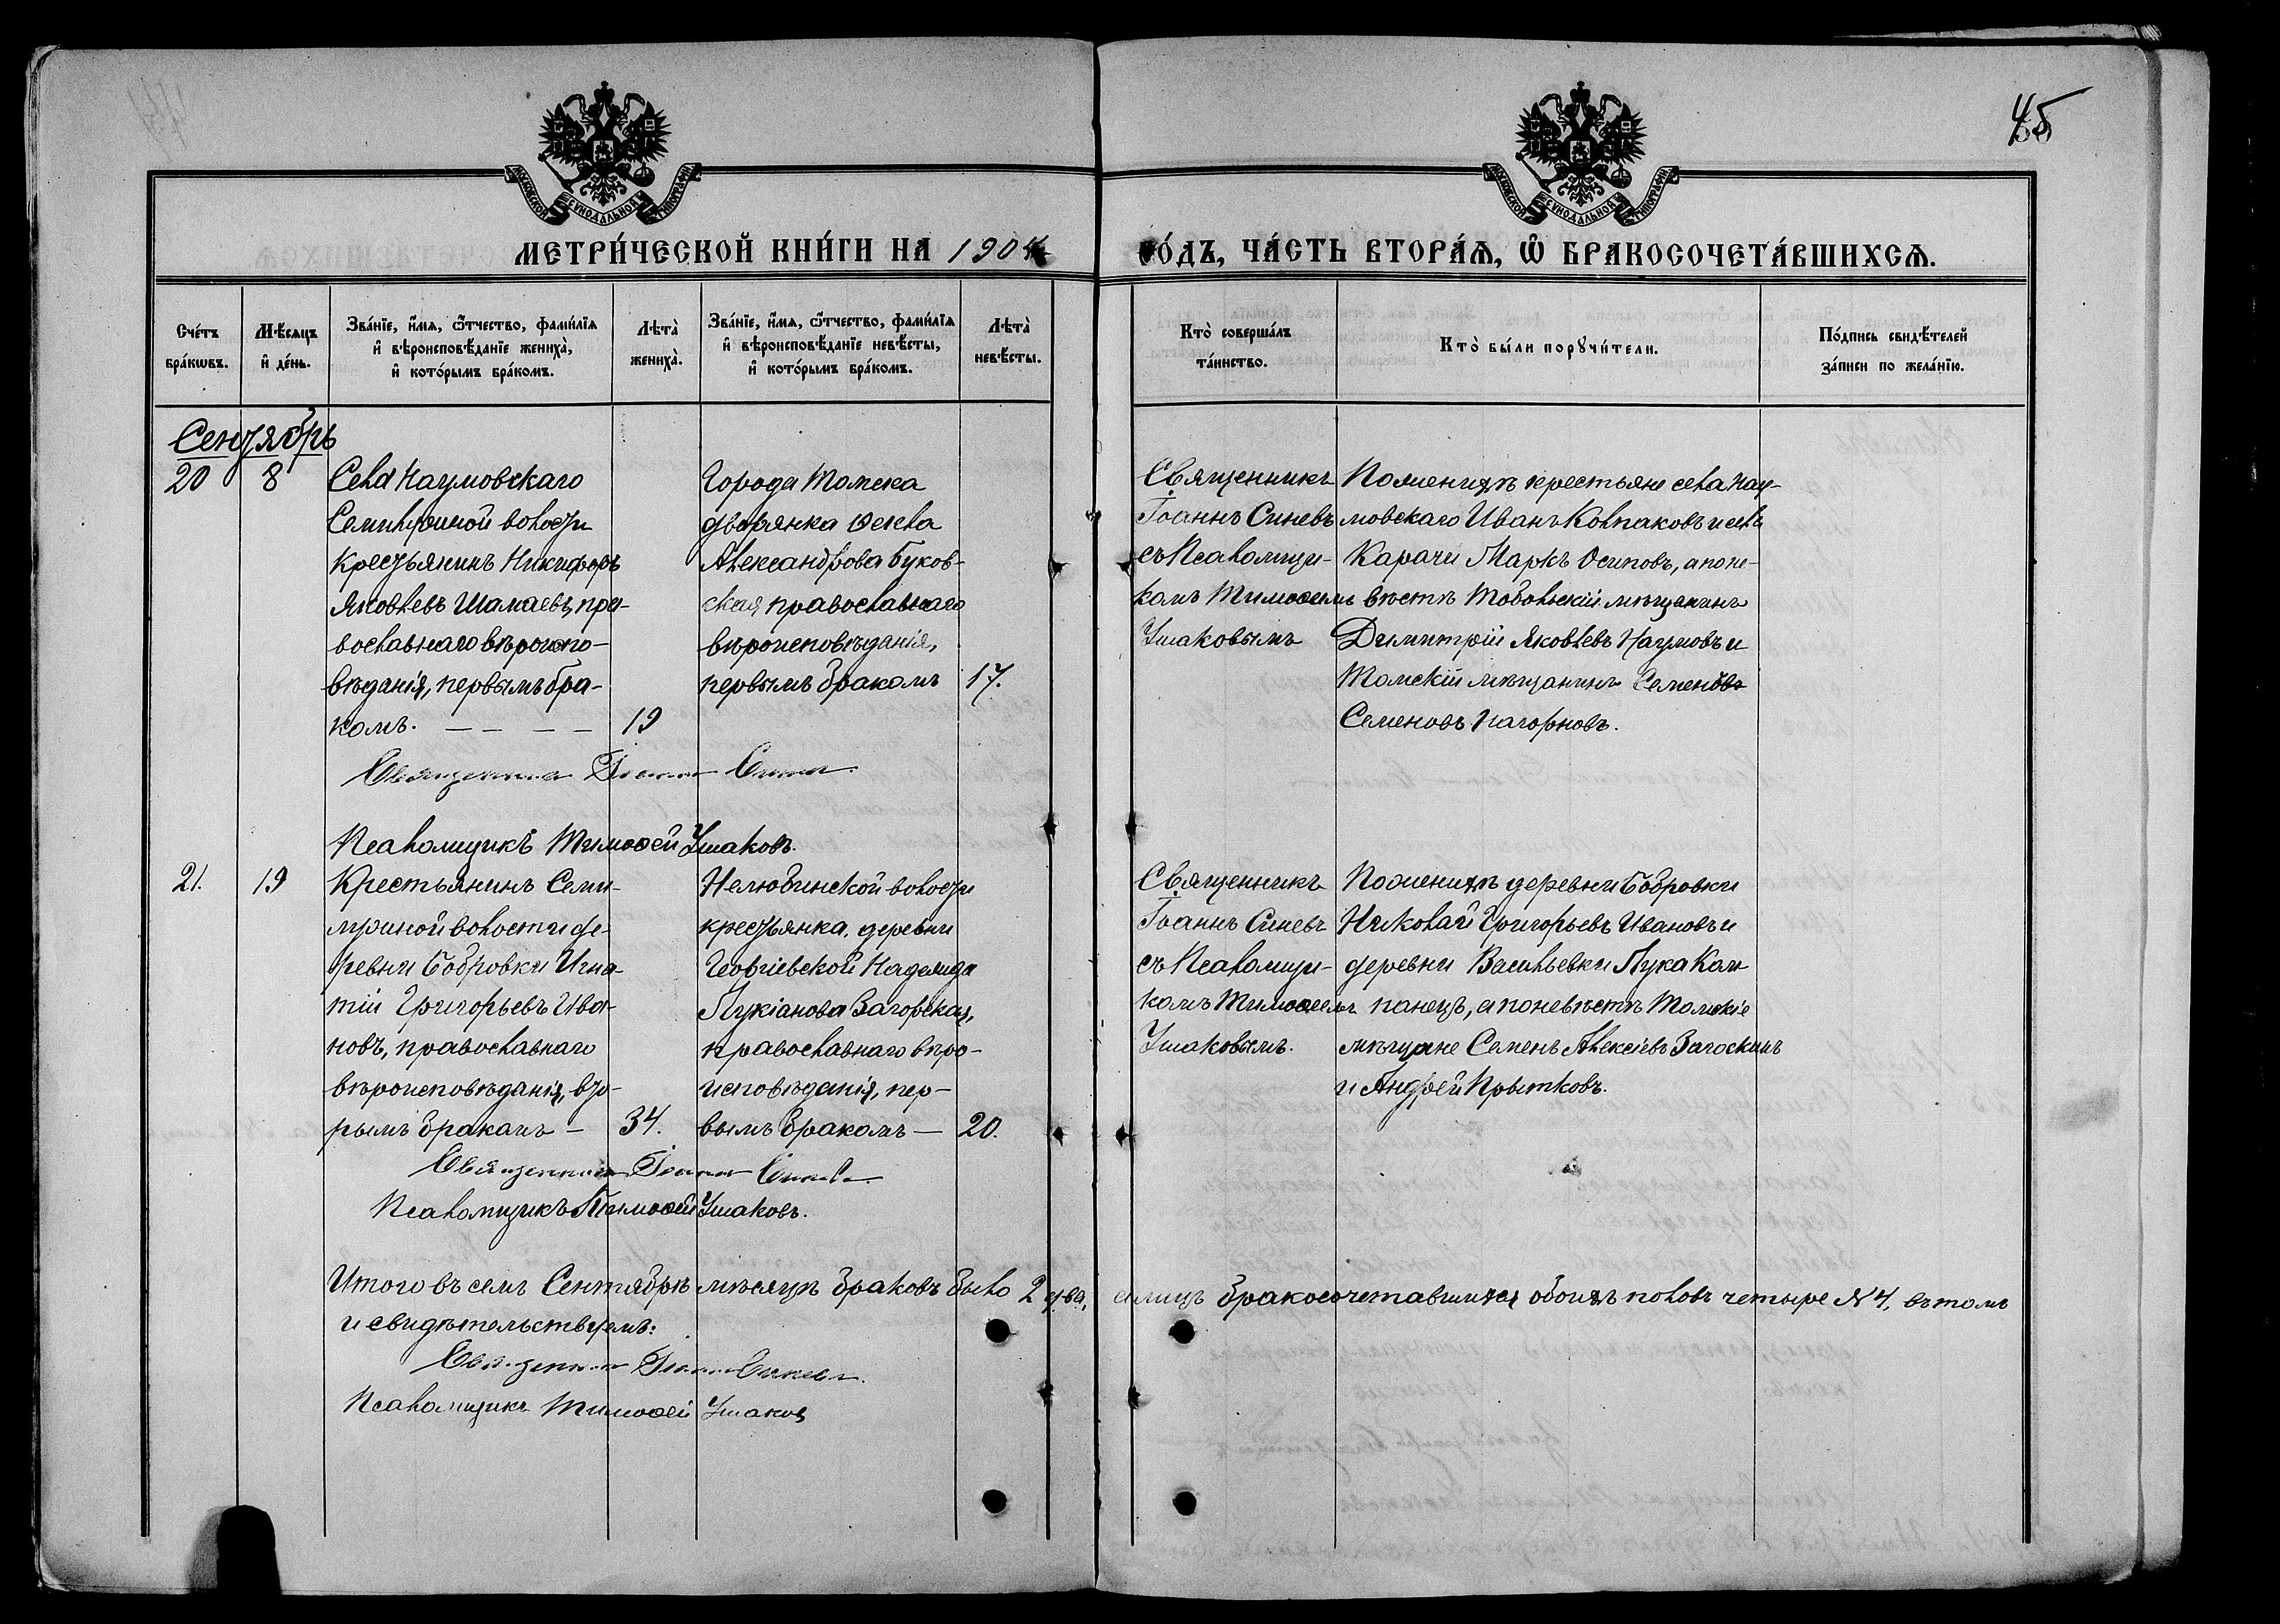 45
МОСКОВСКОЙ СѴНОДАЛЬНОЙ ТИПОГРАФІИ
МОСКОВСКОЙ СѴНОДАЛЬНОЙ ТИПОГРАФІИ
МЕТРИ́ЧЕСКОЙ КНИ́ГИ НА 1904
ГО́ДЪ, ЧА́СТЬ ВТОРА́Ѧ, Ѽ БРАКОСОЧЕТА́ВШИХСѦ.
Сче́тъ
бра́кѡвъ.
Мѣ́сѧцъ
и҆ де́нь.
Зва́нїе, и҆́мѧ, ѻ҆́тчество, фами́лїѧ
и҆ вѣроисповѣ́данїе жениха̀,
и҆ кото́рымъ бра́комъ.
Лѣта̀
жениха̀.
Зва́нїе, и҆́мѧ, ѻ҆́тчество, фами́лїѧ
и҆ вѣроисповѣ́данїе невѣ́сты,
и҆ кото́рымъ бра́комъ.
Лѣта̀
невѣ́сты.
Кто̀ соверша́лъ
та́инство.
Кто̀ бы́ли порꙋчи́тели.
По́дпись свидѣ́телей
за́писи по жела́нїю.
Сентябрь
20
8
Села Наумовскаго
Семилужной волости
крестьянинъ Никифоръ
Яковлевъ Шамаевъ, пра-
вославнаго вѣроиспо-
вѣданія, первымъ бра-
комъ. — — — —
19
Города Томска
дворянка Ѳекла
Александрова Буков-
ская православнаго
вѣроисповѣданія,
первымъ бракомъ
17.
Священникъ
Іоаннъ Синевъ
съ Псаломщи-
комъ Тимоѳеемъ
Ушаковымъ
По женихѣ крестьяне села Нау-
мовскаго Иванъ Колпаковъ и села
Карачи Маркъ Осиповъ, а по не-
вѣстѣ Тобольскій мѣщанинъ
Димитрій Яковлевъ Наумовъ и
Томскій мѣщанинъ Семенъ
Семеновъ Нагорновъ.
Священникъ Іоаннъ Синевъ
Псаломщикъ Тимоѳей Ушаковъ.
21.
19
Крестьянинъ Семи-
лужной волости де-
ревни Бобровки Игна-
тій Григорьевъ Ива-
новъ, православнаго
вѣроисповѣданія, вто-
рымъ бракамъ —
34.
Нелюбинской волости
крестьянка, деревни
Георгіевской Надежда
Лукіанова Загорская,
православнаго вѣро-
исповѣданія, пер-
вымъ бракомъ —
20.
Священникъ
Іоаннъ Синевъ
съ Псаломщи-
комъ Тимоѳеемъ
Ушаковымъ.
По женихѣ деревни Бобровки
Николай Григорьевъ Ивановъ и
деревни Васильевки Лука Кам-
панецъ, а по невѣстѣ Томскіе
мѣщане Семенъ Алексіевъ Загоскинъ
и Андрей Прытковъ.
Священникъ Іоаннъ Синевъ
Псаломщикъ Тимоѳей Ушаковъ.
Итого въ семъ Сентябрѣ мѣсяцѣ браковъ было 2 два, а лицъ бракосочетавшихся обоихъ половъ четыре № 4, въ томъ
и свидѣтельствуемъ:
Священникъ Іоаннъ Синевъ
Псаломщикъ Тимоѳей Ушаковъ